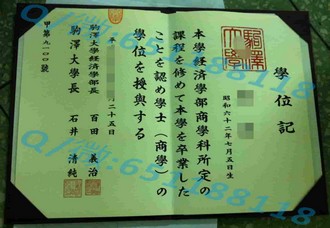 學位記
昭和六十二年七月五日生
本學経済學部商學科所定の
課程を修めて本學を卒業した
ことを認め學士（商學）の
學位を授與する
二十五日
駒澤大學経済學部長 百田 義治
駒澤大學長 石井 清純
甲第九一〇〇號
駒澤大學
651188118